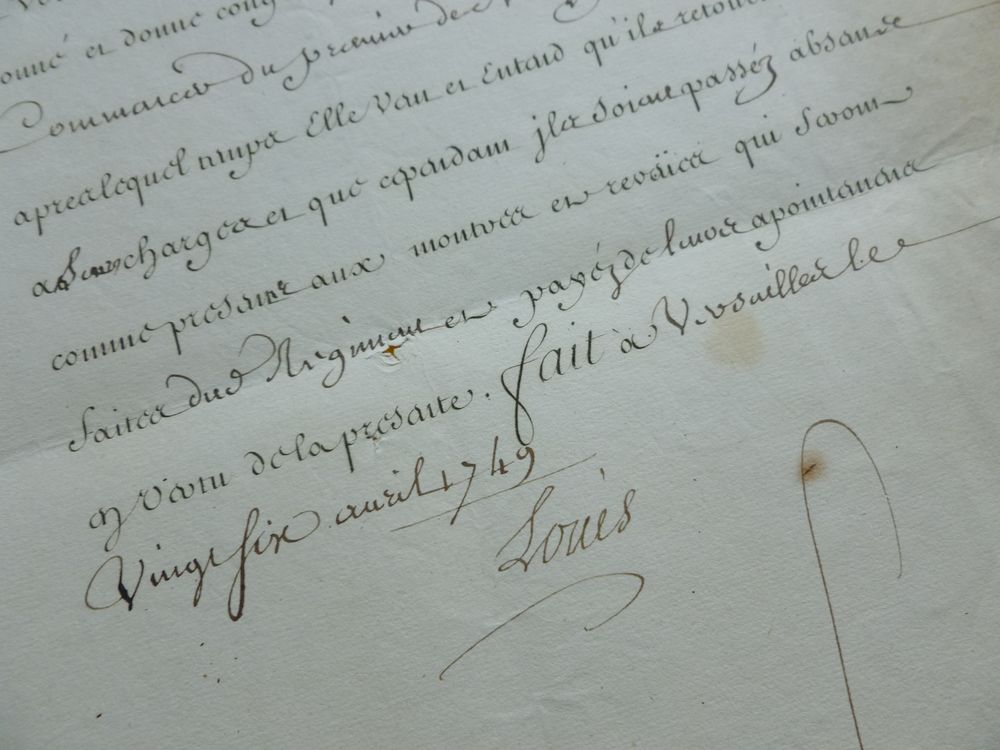 onné et donné cong
Commancer du premier de
apres lequel temps Elle Veut et Entand qu'ils retou
a leurs charges et que cependant jls soient passéz absans
comme presans aux montres et reveües qui seront
faites dud Regiment et payéz de leurs apointemens
en Vertu de la presente. fait a Versailles le
Vingt six avril 1749
Louis